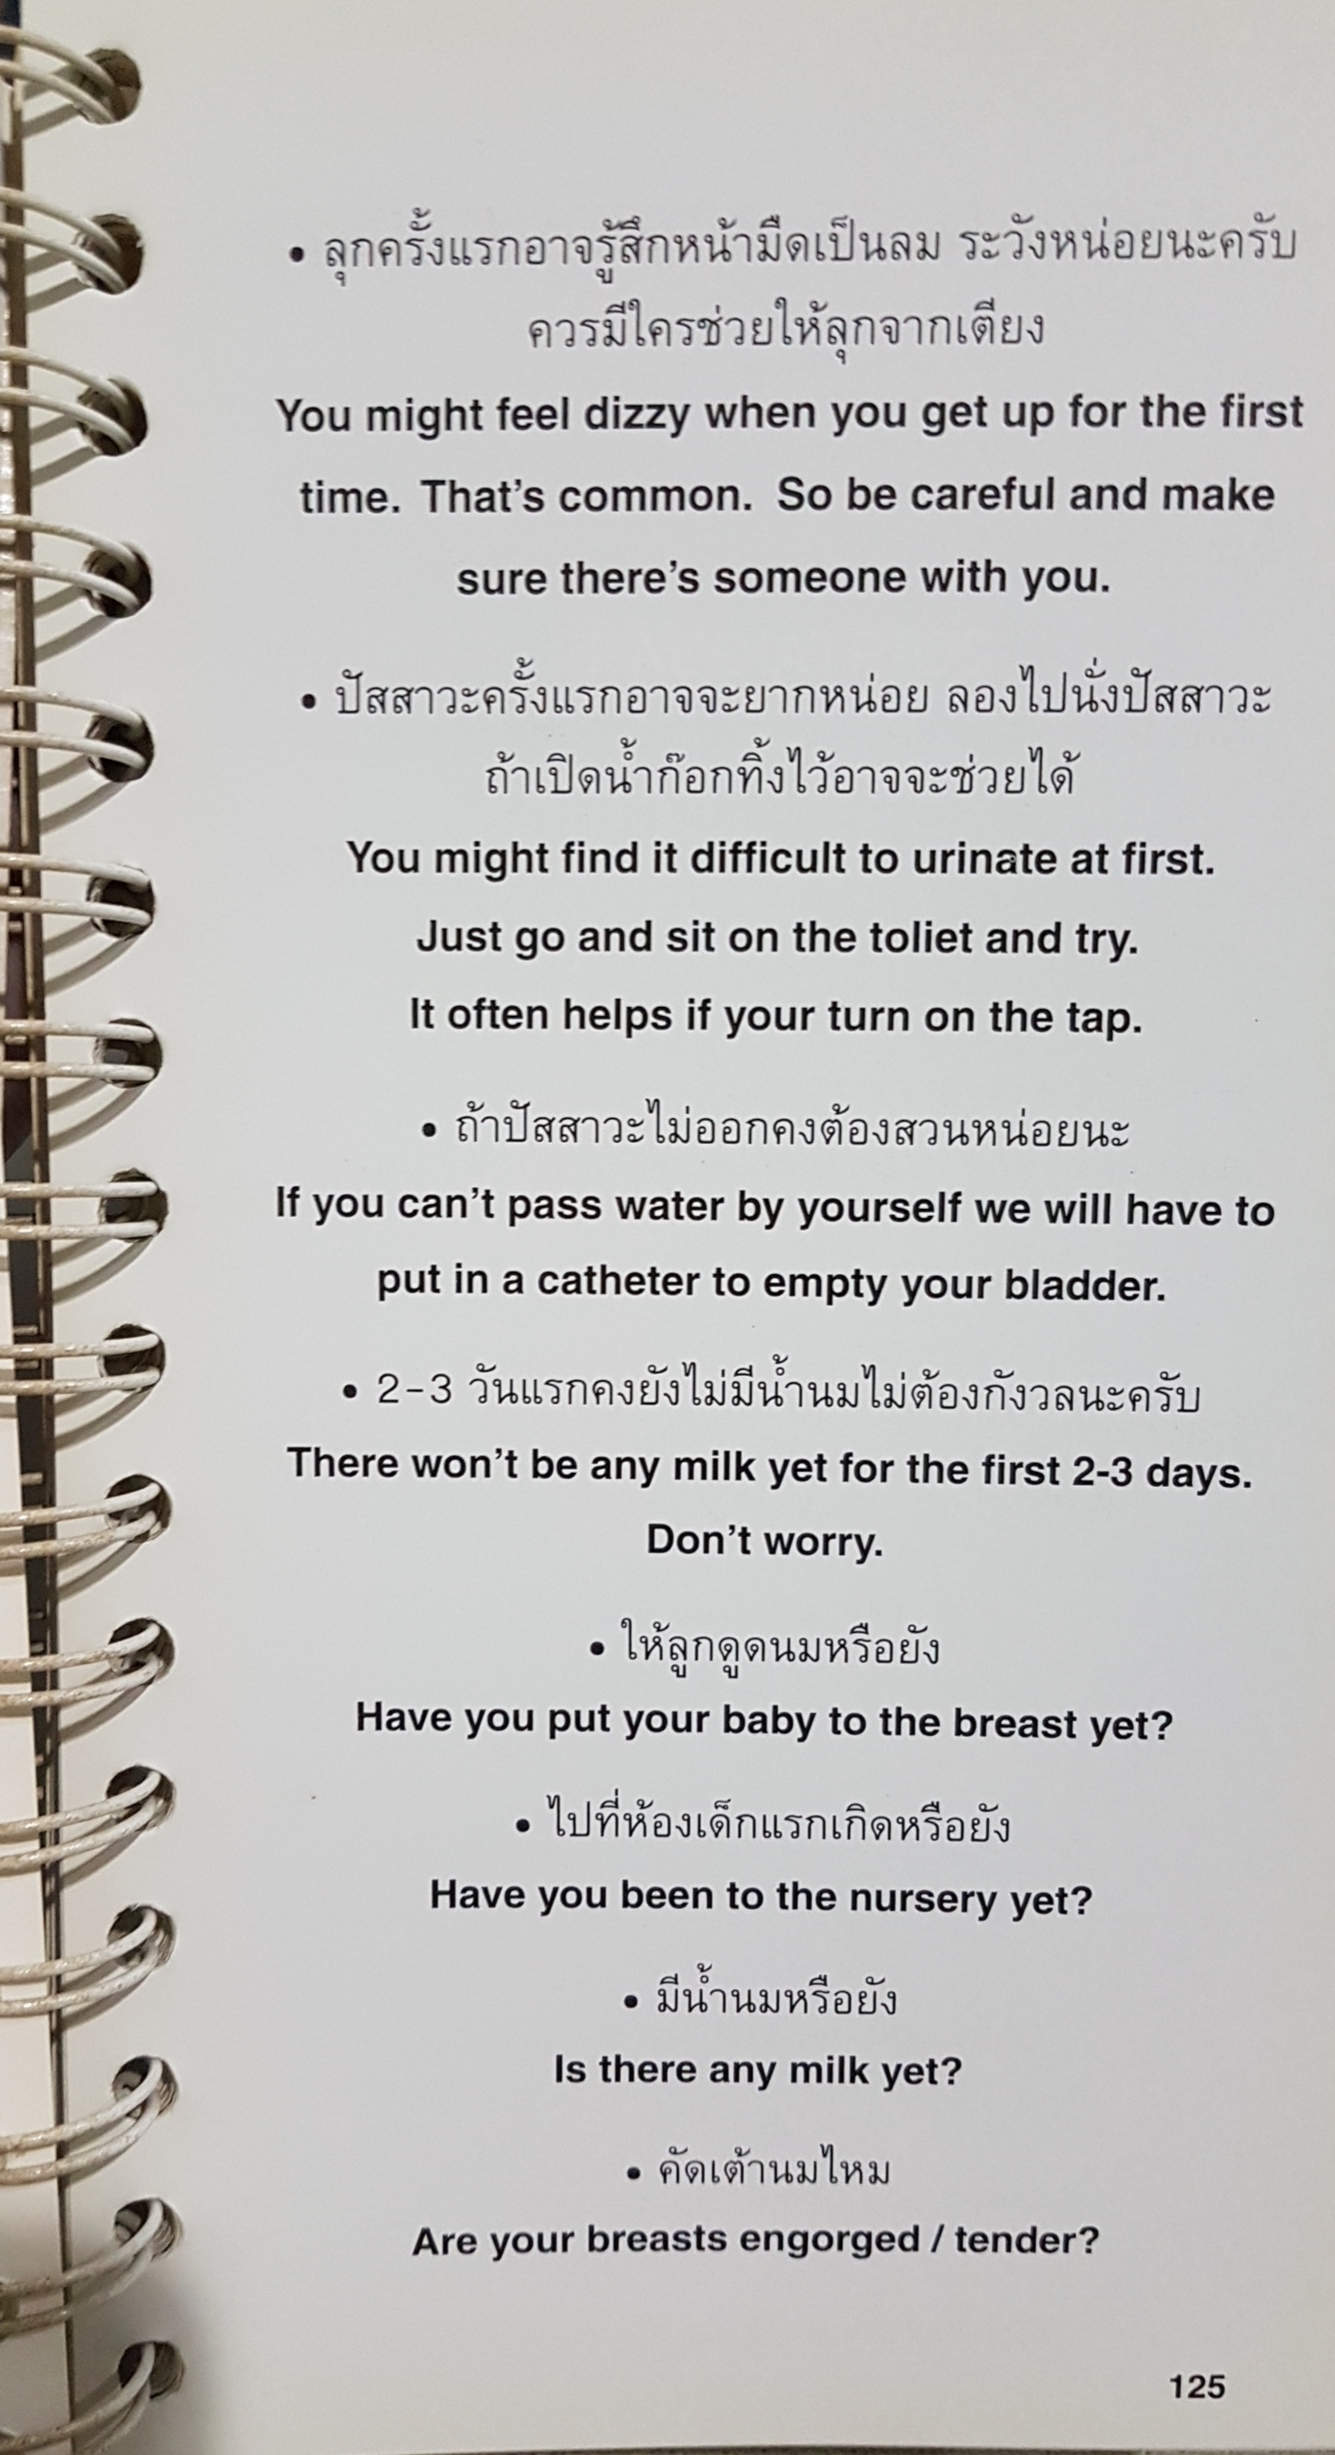 • ลุกครั้งแรกอาจรู้สึกหน้ามืดเป็นลม ระวังหน่อยนะครับ
ควรมีใครช่วยให้ลุกจากเตียง
You might feel dizzy when you get up for the first
time. That's common. So be careful and make
sure there's someone with you.
• ปัสสาวะครั้งแรกอาจจะยากหน่อย ลองไปนั่งปัสสาวะ
ถ้าเปิดน้ำก๊อกทิ้งไว้อาจจะช่วยได้
You might find it difficult to urinate at first.
Just go and sit on the toliet and try.
It often helps if your turn on the tap.
• ถ้าปัสสาวะไม่ออกคงต้องสวนหน่อยนะ
If you can't pass water by yourself we will have to
put in a catheter to empty your bladder.
• 2-3 วันแรกคงยังไม่มีน้ำนมไม่ต้องกังวลนะครับ
There won't be any milk yet for the first 2-3 days.
Don't worry.
• ให้ลูกดูดนมหรือยัง
Have you put your baby to the breast yet?
• ไปที่ห้องเด็กแรกเกิดหรือยัง
Have you been to the nursery yet?
• มีน้ำนมหรือยัง
Is there any milk yet?
• คัดเต้านมไหม
Are your breasts engorged / tender?
125